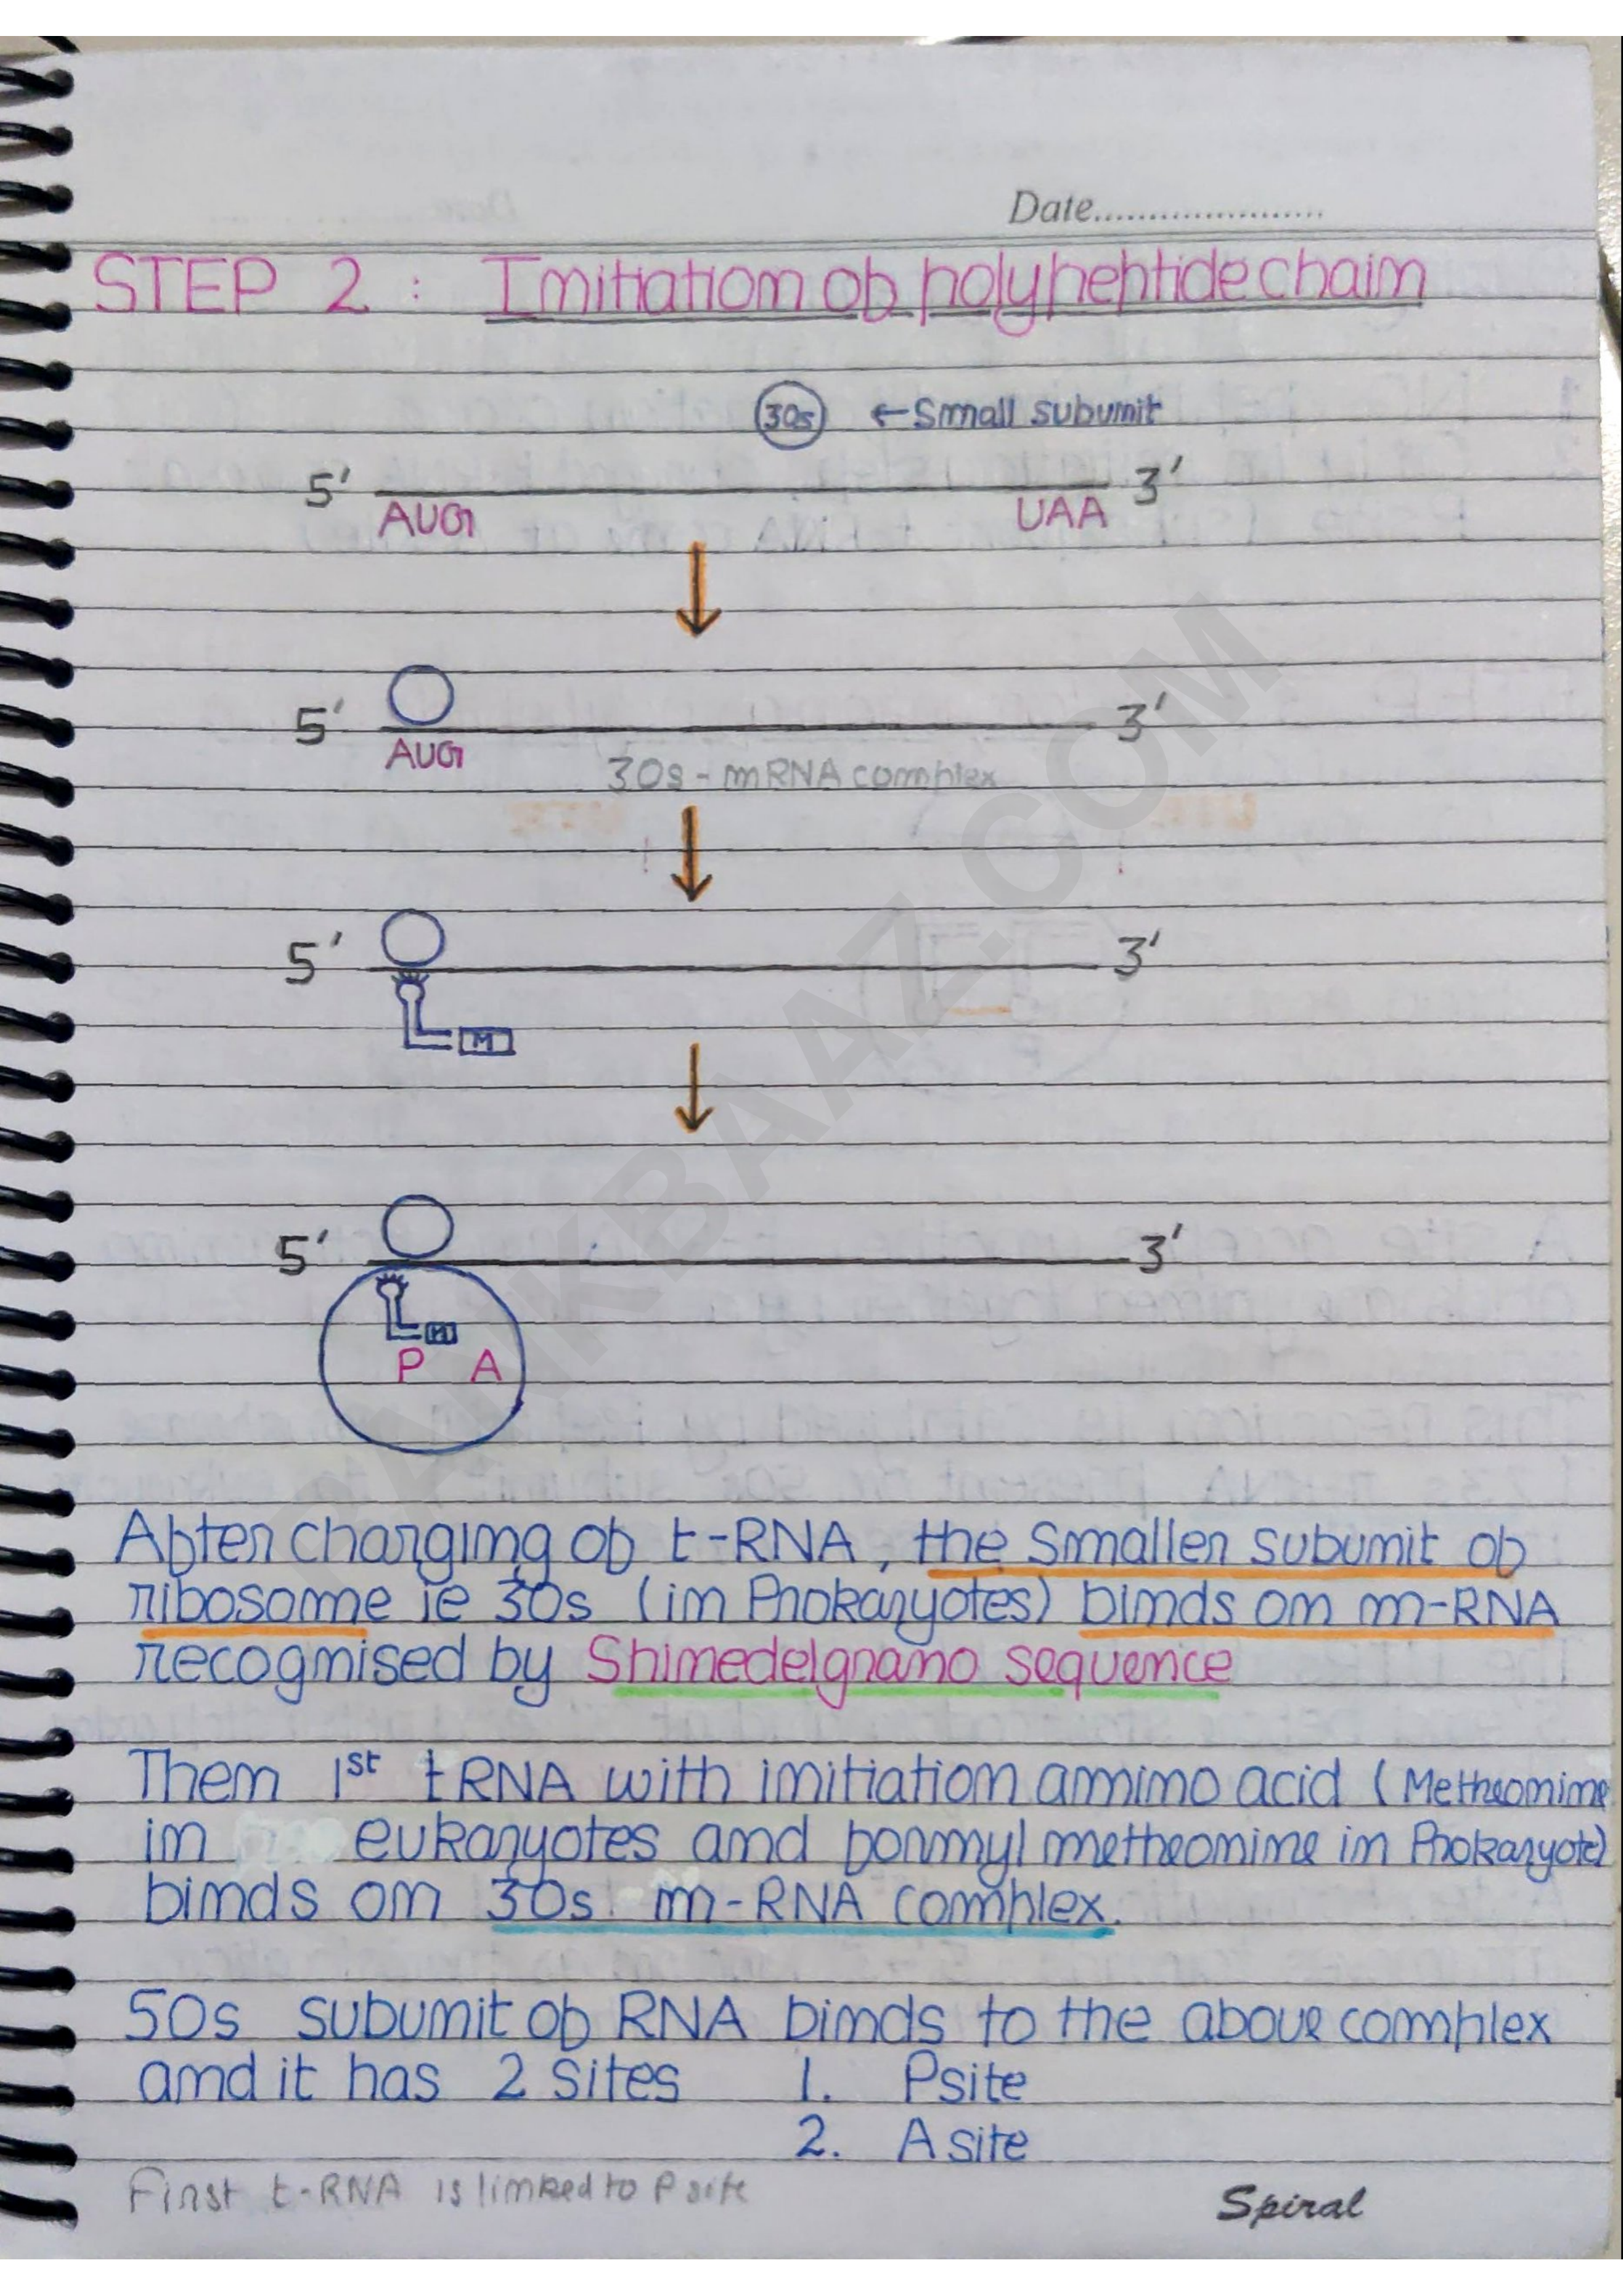 Date......................
STEP 2 : Initiation of polypeptide chain
30s ← Small subunit
5' 3'
AUG UAA
5' 3'
AUG
30s - mRNA complex
5' 3'
M
5' 3'
M
P A
After charging of t-RNA, the smaller subunit of
ribosome ie 30s (in Prokaryotes) binds on m-RNA
recognised by Shinedelgrano sequence
Then 1st tRNA with initiation amino acid (Metheonine
in eukaryotes and formyl metheonine in Prokaryote)
binds on 30s m-RNA complex.
50s subunit of RNA binds to the above complex
and it has 2 sites 1. Psite
2. A site
First t-RNA is linked to P site
Spiral
RANKBAAZ.COM